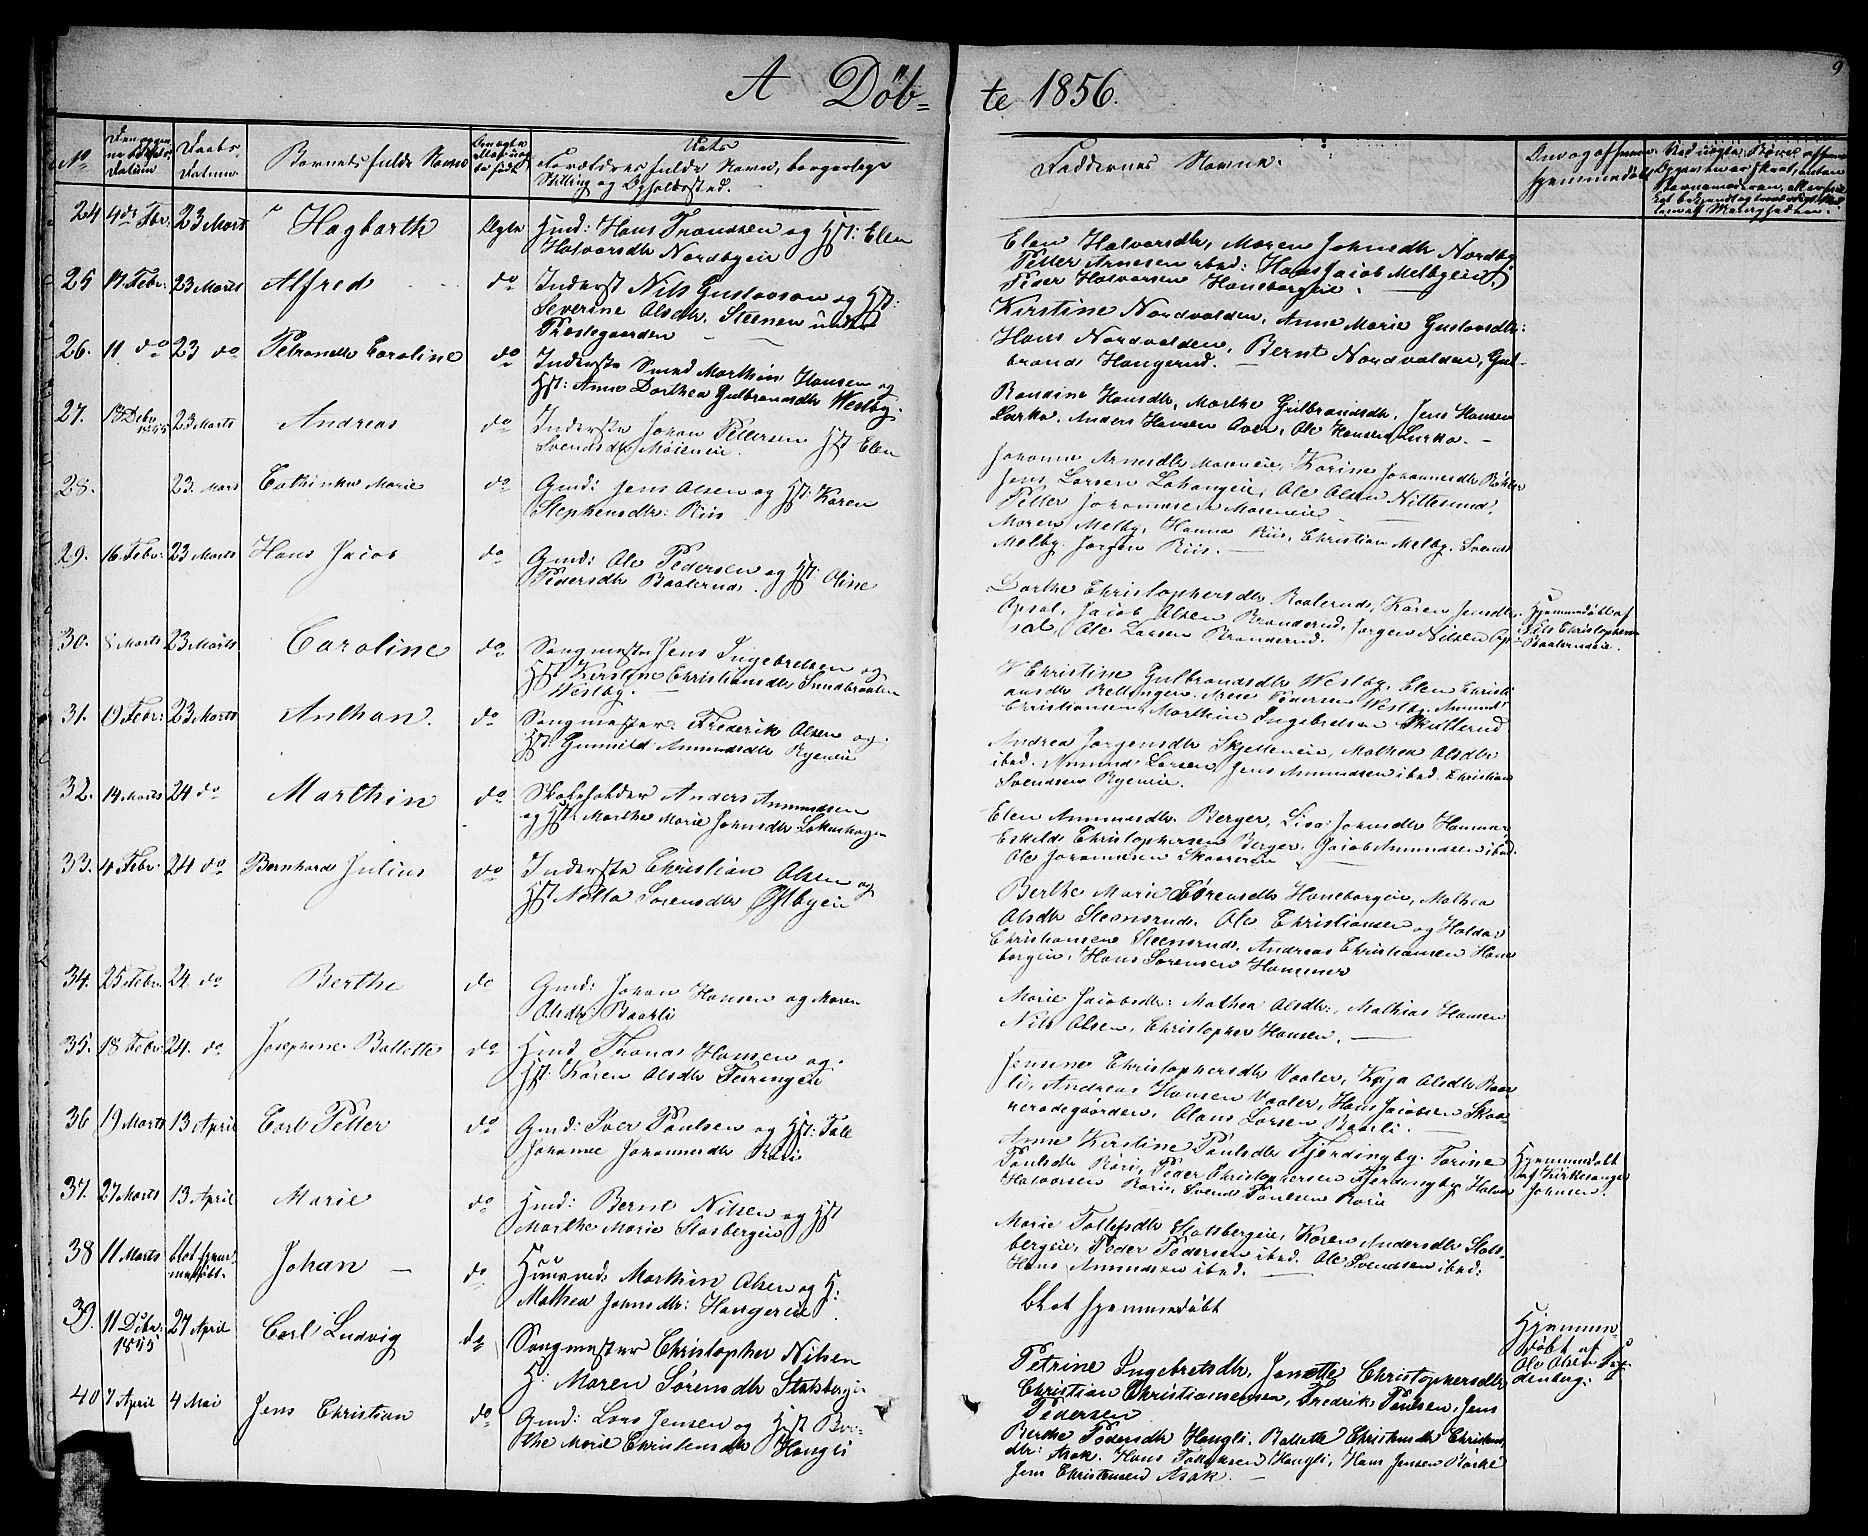 A Döb= te 1856.
9
No
Daabs Datum
Barnets fulde Navn
Forældres fulde Navn, borgerlige
Stilling og Opholdssted.
Faddernes Navne.
24 4de Febr: 23 Marts Hagbarth Ægte Gmd: Hans Transsen og Hst: Elen
Halvorsdtr Nordbyeie
Elen Halvorsdtr, Maren Johnsdtr Nordby
Petter Arnesen ibid: Hans Jacob Melbyeie,
Peder Halvorsen Haneborgeie.
25 17 Febr: 23 Marts Alfred do Inderst Nils Gustavson og Hst:
Severine Olsdtr. Steenen under
Præstegaarden
Kirstine Nordvolden, Anne Marie Gustavsdtr:
Hans Nordvolden, Bernt Nordvolden, Gul-
brand Haugerud.
26. 11 do 23 do Petronelle Caroline do Inderste Smed Marthin Hansen og
Hst: Anne Dorthea Gulbrandsdtr Westby.
Randine Hansdtr, Marthe Gulbrandsdtr, Jens Hansen
Lurka, Anders Hansen Aaer, Ole Hansen Lurka.
27. 18 Debr 1855 23 Marts Andreas do Inderste Johan Pettersen Hst Elen
Svendsdtr Moseneie.
Johanne Arnesdtr Moseneie, Karine Johannesdtr
Jens Larsen Lohaugeie, Ole Olsen Nittesund,
Petter Johannesen Moseneie
28. 23. Mars Cathinka Marie do Gmd: Jens Olsen og Hst: Karen
Stephensdtr: Riis
Maren Melby, Hanna Riis, Christian Melby, Svend
Melby, Jørgen Riis.
29. 16 Febr: 23 Marts Hans Jacob do Gmd: Ole Pedersen og Hst: Oline
Pedersdtr Baalerud.
Dorthe Christophersdtr Baalerud, Karen Jensdtr
Opsal, Jacob Olsen Branderud, Jørgen Nilsen Op-
sal, Ole Larsen Branderud.
Hjemmedøbt af
Nils Christophersen
Baalerudeie.
30. 8 Marts 23 Marts Caroline do Sangmester Jens Ingebretsen og
Hst Kirstine Christiansdtr Sundbraaten
Westby.
Christine Gulbrandsdtr Westby, Elen Christi-
ansdtr Rellingen, Arne Pedersen Westby, Amund
Christiansen, Marthin Ingebretsen Skullerud
31. 19 Febr: 23 Marts Anthan. do Sangmester Frederik Olsen og
Hst: Gunnild Amundsdtr Ryeneie
Andrea Jørgensdtr Skjetteneie, Mathea Olsdtr
ibid. Amund Larsen, Jens Amundsen ibid. Christian
Svendsen Ryeneie.
32. 14 Marts 24 do Marthin do Skoleholder Anders Amundsen
og Hst: Marthe Marie Johnsdtr Løkenhagen
Elen Amundsdtr Berger, Lisa Johnsdtr Hammer,
Eskild Christophersen Berger, Jacob Amundsen ibid.
Ole Johannesen Skaaneren
33. 4 Febr 24 do Bernhard Julius do Inderste Christian Olsen og
Hst Netta Sørensdtr Østbyeie
Berthe Marie Sørensdtr Haneborgeie, Mathea
Olsdtr Steensrud, Ole Christiansen og Haldor
Christiansen Steensrud, Andreas Christiansen Hane
borgeie, Hans Sørensen Hammer
34. 25 Febr. 24 do Berthe do Gmd: Johan Hansen og Maren
Olsdtr Baarli
Marie Jacobsdtr: Mathea Olsdtr:, Mathias Hansen
Nils Olsen, Christopher Hansen.
35. 18 Febr 24. do Josephine Bollette do Gmd Thomas Hansen og
Hst: Karen Olsdtr Teiringeie
Jensine Christophersdtr Vaaler, Kaja Olsdtr Baar-
li, Andreas Hansen Vaaler, Hans Jacobsen Skaa-
neradegaarden, Olaus Larsen Baarli.
36 19 Marts 13 April Carl Petter do Gmd: Iver Paulsen og Hst: Tale
Johanne Johannesdtr Røri
Anne Kirstine Paulsdtr Fjerdingby. Torine
Paulsdtr Røri, Peder Christophersen Fjerdingby, Halvor
Halvorsen Røri, Svend Paulsen Rørie
Hjemmedøbt
af Kirkesanger
Johnsen.
37. 27 Marts 13 April Marie do Gmd: Bernt Nilsen og Hst
Marthe Marie Stasbergeie
Marie Tollefsdtr Stalsbergeie, Karen Andersdtr Stals-
bergeie, Peder Pedersen ibid. Ole Svendsen ibid:
Hans Amundsen ibid.
38 11 Marts blot hjem-
medøbt. Johan do Huusmd Marthin Olsen og H:
Mathea Johnsdtr: Haugereie
blot hjemmedøbt
39. 11 Debr: 1855 27 April Carl Ludvig do Sangmester Christopher Nilsen
H: Maren Sørensdtr Stalsbergeie
Petrine Ingebretsdtr, Janette Christophersdtr
Christian Christiansen, Fredrik Paulsen, Jens
Pedersen
Hjemme-
døbt af
Ole Olsen
denberg.
40 7 April 4 Mai Jens Christian do Gmd: Lars Jensen og Hst Ber-
the Marie Christensdtr Haugli
Berthe Pedersdtr Haugli, Bollette Christensdtr Christens
dtr: Asak. Hans Haugli, Hans Jensen
Jens Christensen Asak.